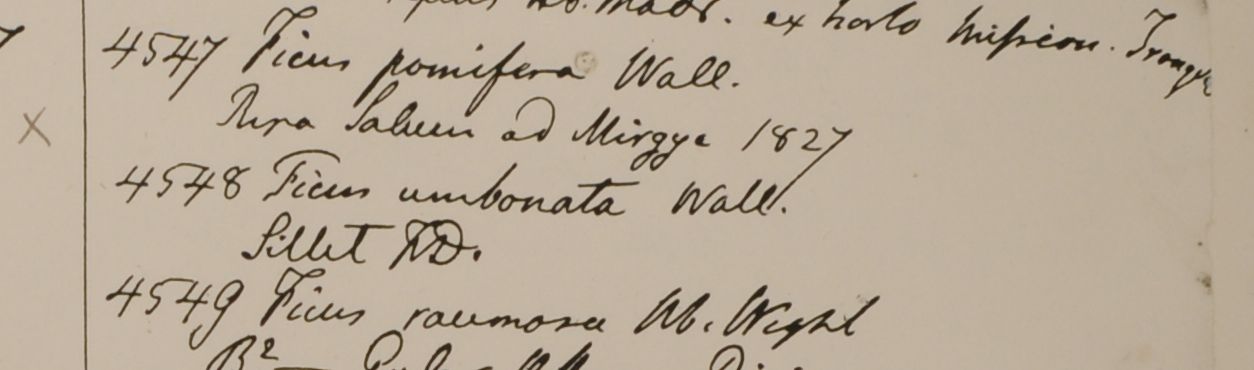 Hb. Madr. ex horto Mission. Tranq
4547 Ficus pomifera Wall.
Ripa Saluen ad Mirgye 1827
X
4548 Ficus umbonata Wall.
Sillet FD.
4549 Ficus racemosa Hb. Wight
B²